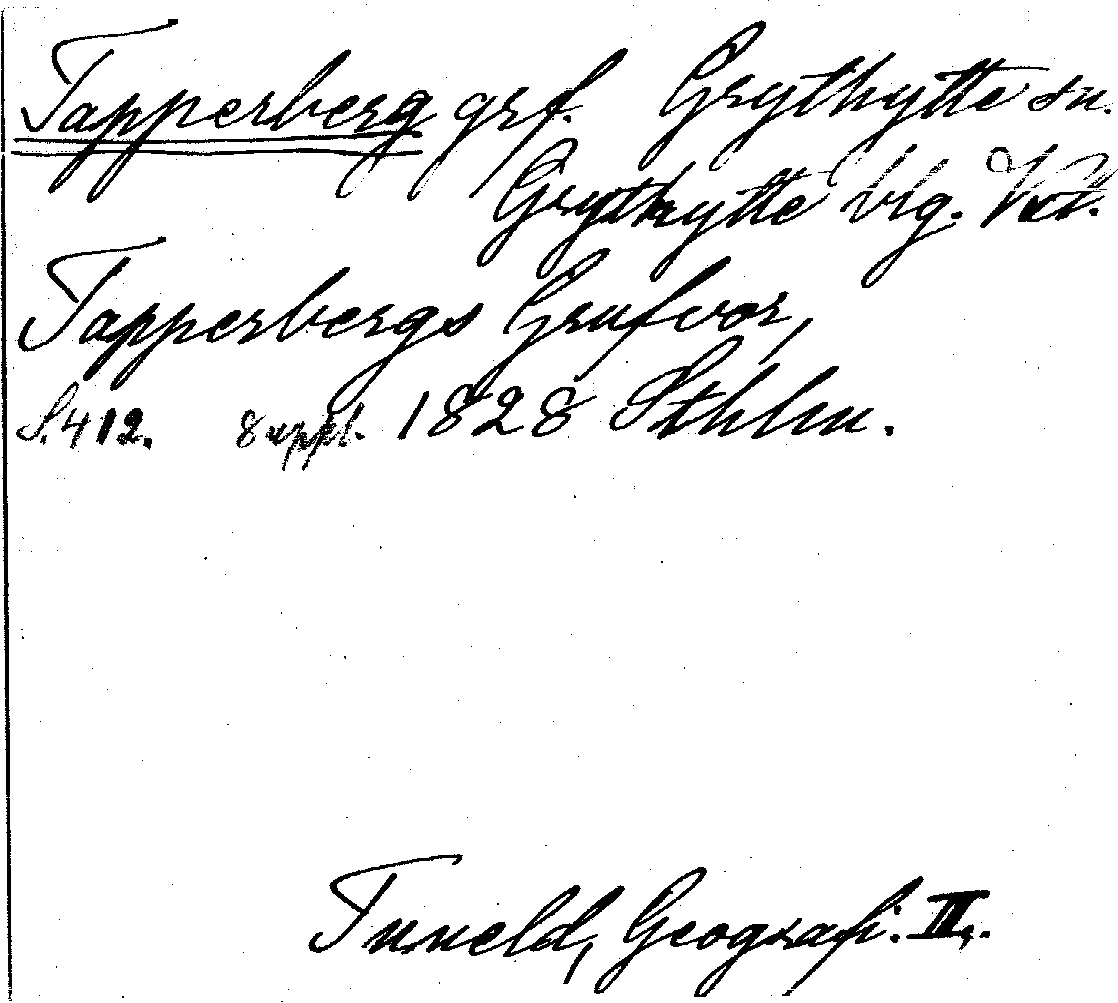 Tapperberg grf. Grythytte sn.
Grythytte blg. Vstl.
Tapperbergs Grufvor,
S. 412. 8 uppl. 1828 Sthlm.
Tuneld, Geografi. II.